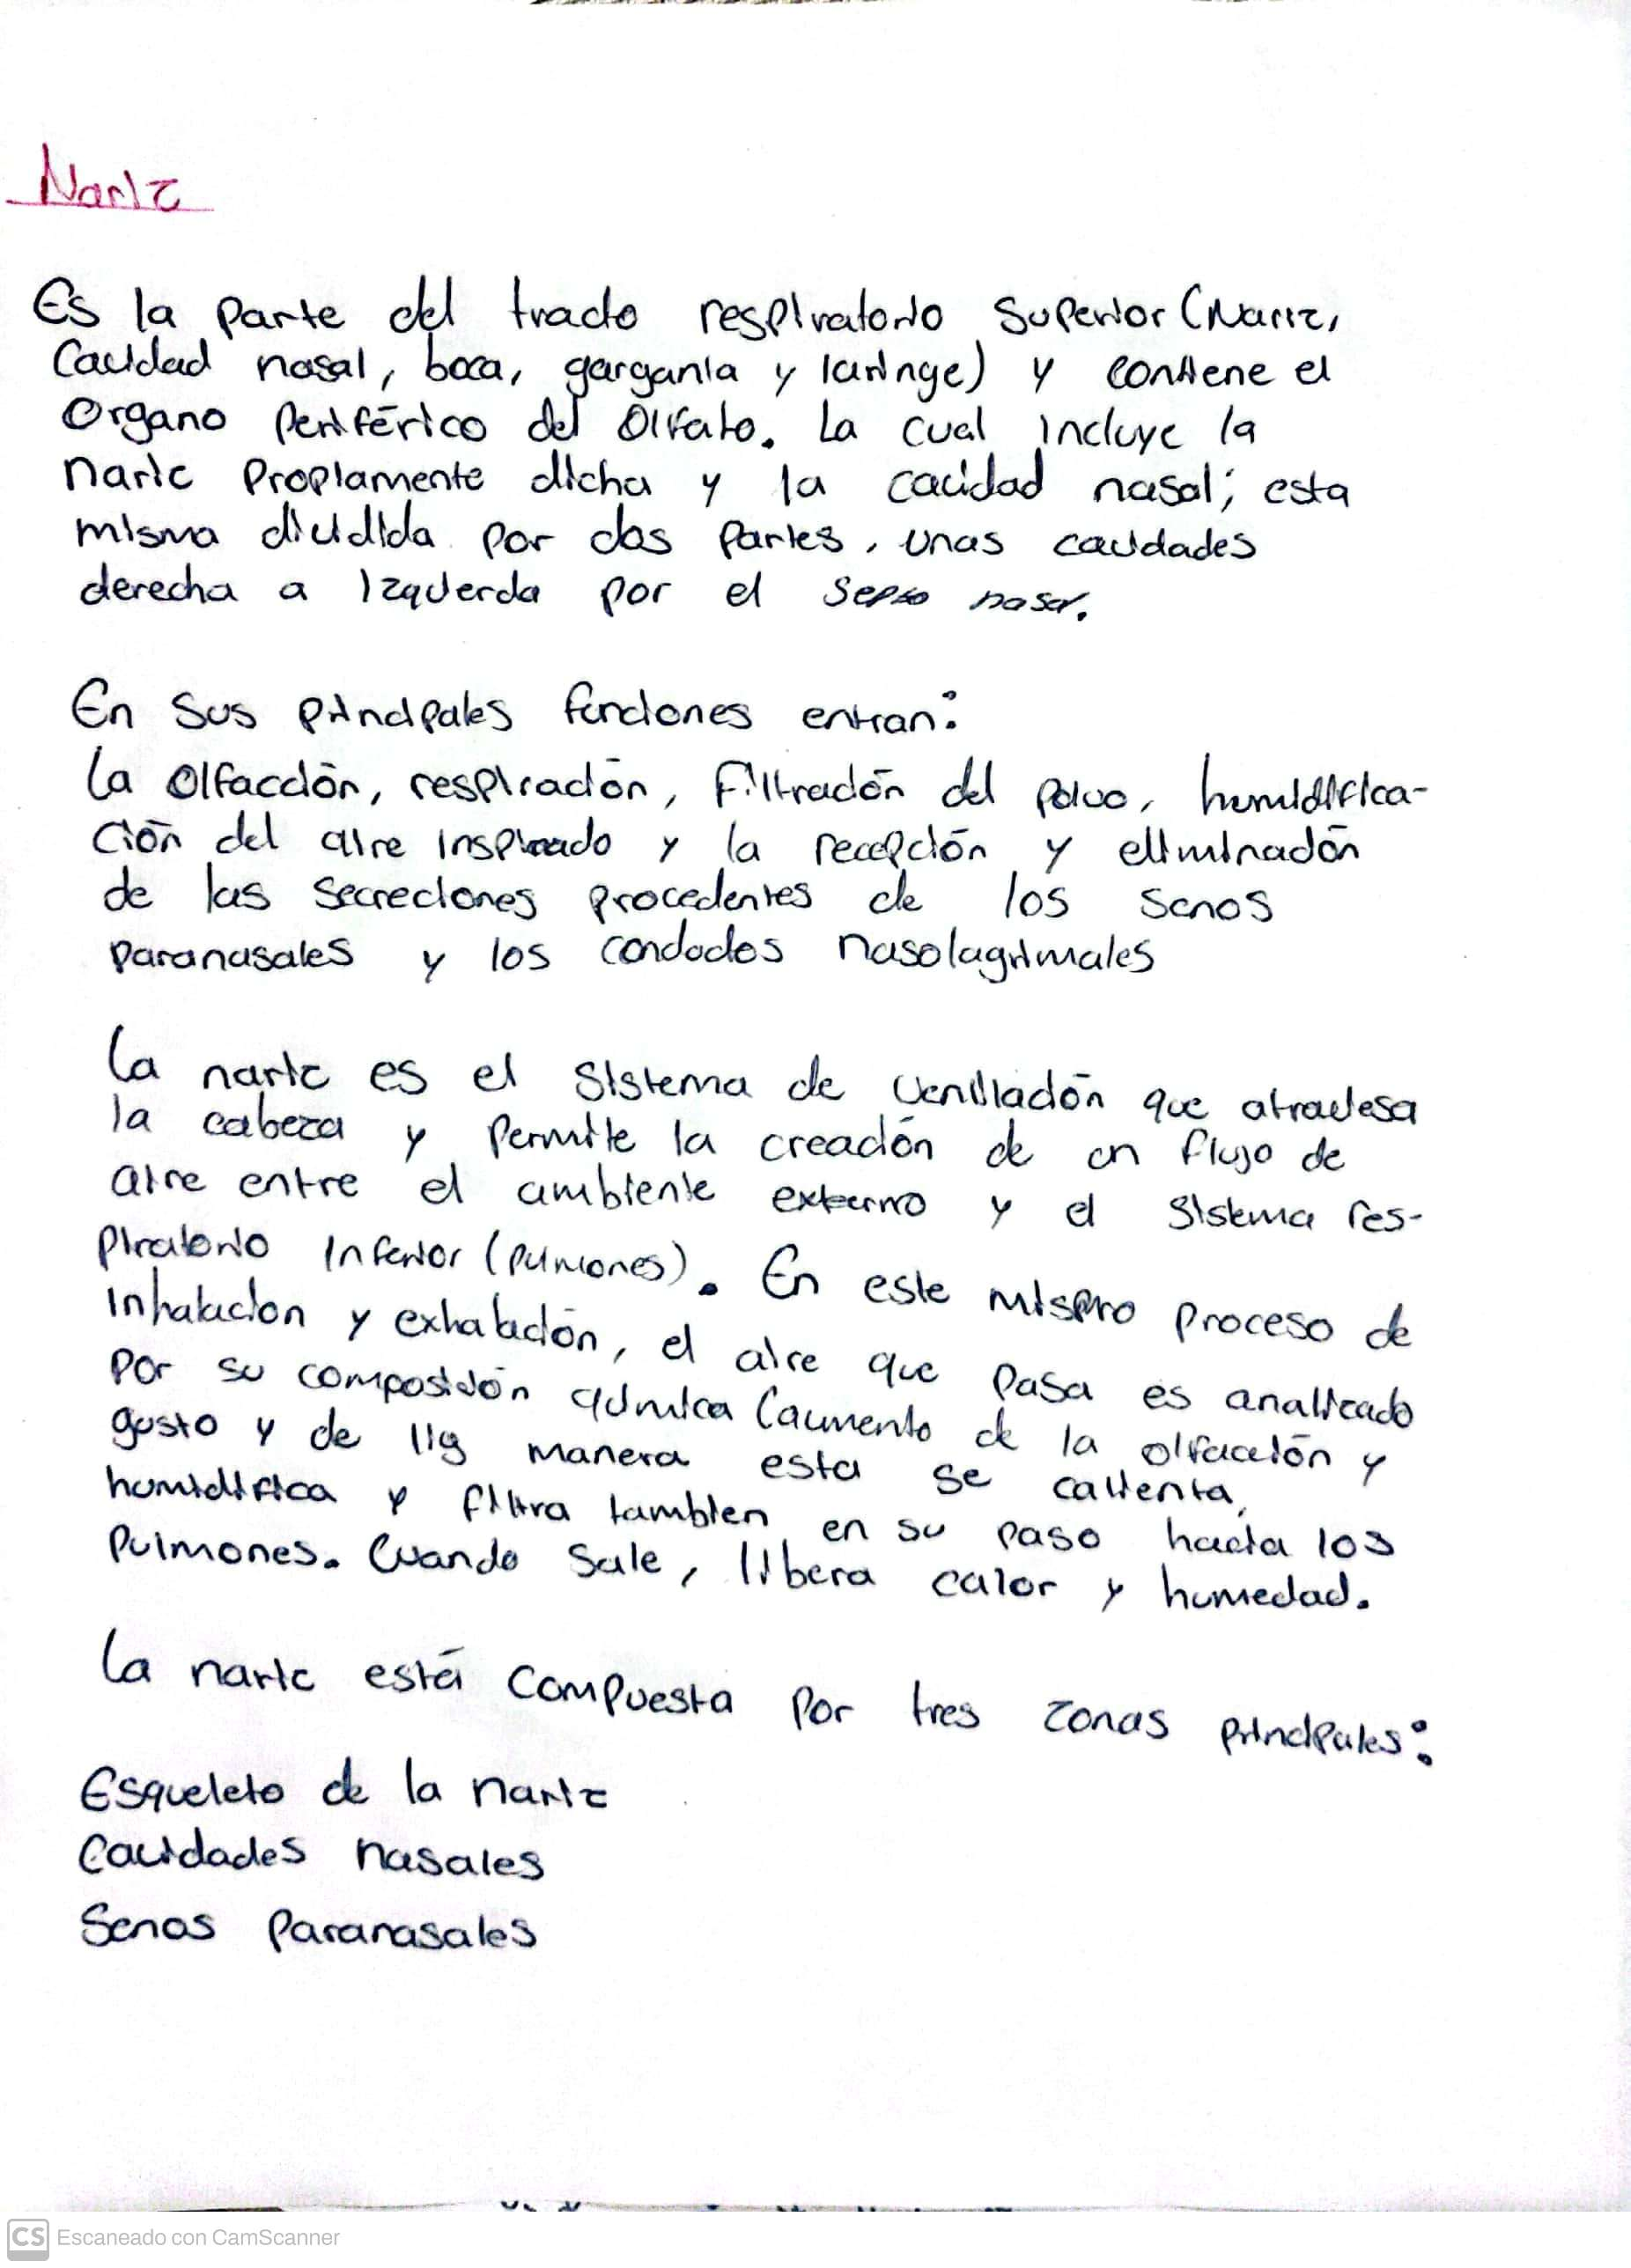 Nariz
Es la parte del tracto respiratorio superior (Nariz,
Cavidad nasal, boca, garganta y laringe) y contiene el
Organo Periférico del Olfato. La cual incluye la
nariz Propiamente dicha y la cavidad nasal; esta
misma dividida por dos partes, unas cavidades
derecha a izquierda por el septo nasal.
En Sus principales funciones entran:
La Olfacción, respiración, Filtración del polvo, humidifica-
ción del aire inspirado y la recepción y eliminación
de las secreciones procedentes de los senos
paranasales y los conductos nasolagrimales
La nariz es el sistema de ventilación que atraviesa
la cabeza y permite la creación de un flujo de
aire entre el ambiente externo y el sistema res-
piratorio inferior (pulmones). En este mismo proceso de
inhalacion y exhalación, el aire que pasa es analizado
por su composición química (aumento de la olfacción y
gusto y de manera esta se calienta,
humidifica y filtra tambien en su paso hacia los
Pulmones. Cuando sale, libera calor y humedad.
La nariz está compuesta por tres zonas principales:
Esqueleto de la nariz
Cavidades nasales
Senos Paranasales
CS Escaneado con CamScanner